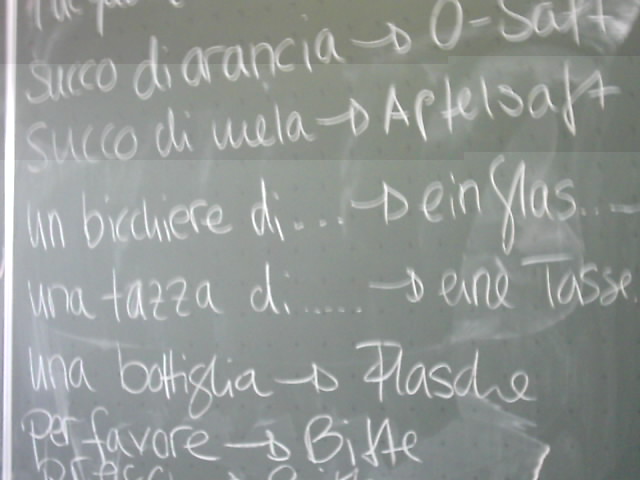 succo di arancia → O-Saft
succo di mela → Apfelsaft
un bicchiere di... → ein Glas...
una tazza di..... → eine Tasse
una bottiglia → Flasche
per favore → Bitte